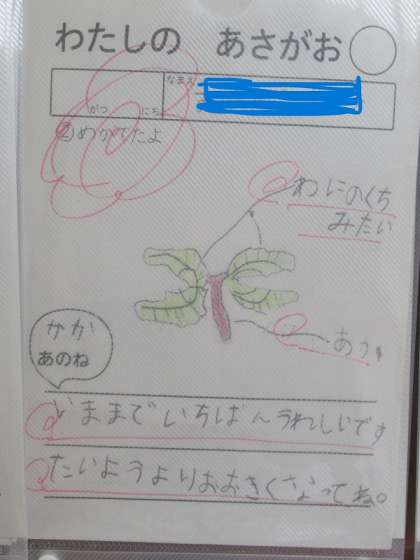 わたしの あさがお
なまえ
がつ にち
②めがでたよ
わにのくち
みたい
あかい
あのね
いままでいちばんうれしいです
たいようよりおおきくなってね。